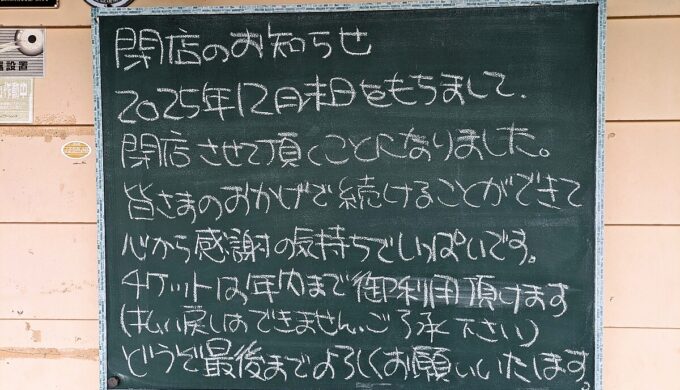 設置
閉店のお知らせ
2025年12月末日をもちまして.
閉店させて頂くことになりました。
皆さまのおかげで続けることができて
心から感謝の気持ちでいっぱいです。
チケットは年内まで御利用頂けます
(払い戻しはできません。ご了承下さい)
どうぞ最後までよろしくお願いいたします。